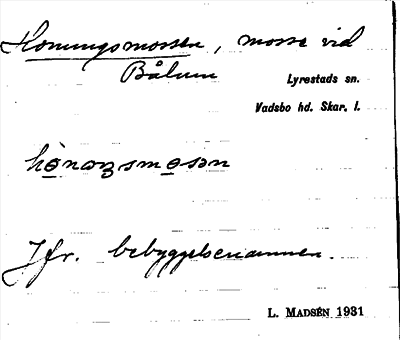 Konungsmossen, mosse vid
Bålum
Lyrestads sn.
Vadsbo hd. Skar. l.
hònaŋsmosən
Jfr. bebyggelsenamnen.
L. MADSÉN 1931